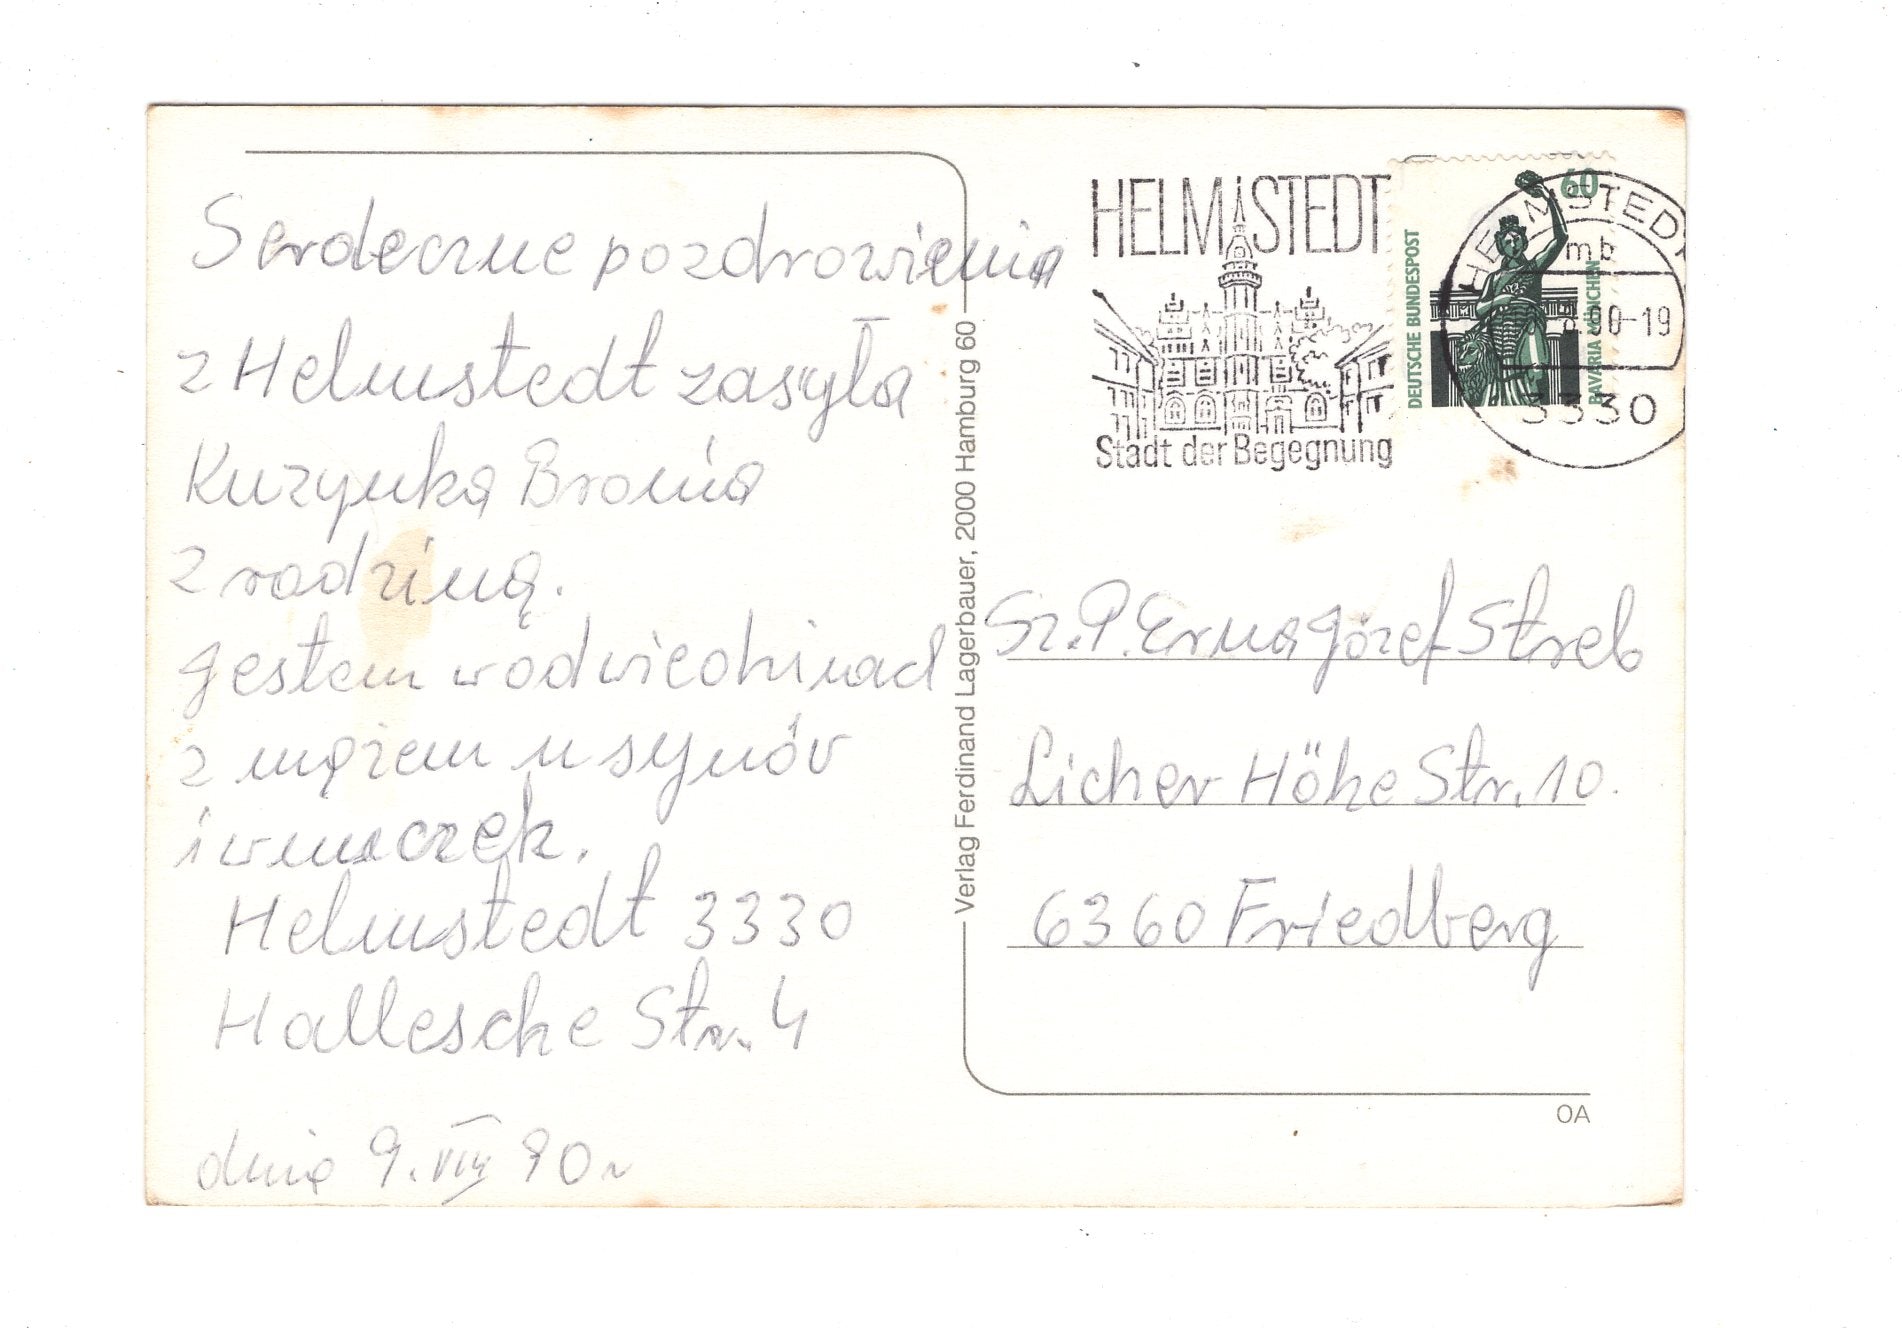 Serdeczne pozdrowienia
z Helmstedt zasyła
Kuzynka Bronia
z rodziną.
Jestem w odwiedzinach
z mężem u synów
i wnuczek.
Helmstedt 3330
Hallesche Str. 4
dnia 9. VIII 90 r
Verlag Ferdinand Lagerbauer, 2000 Hamburg 60
HELMSTEDT
Stadt der Begegnung
DEUTSCHE BUNDESPOST
60
BAVARIA MÜNCHEN
HELMSTEDT
mb
90-19
3330
Sz. P. Erna Józef Streb
Licher Höhe Str. 10.
6360 Friedberg
OA